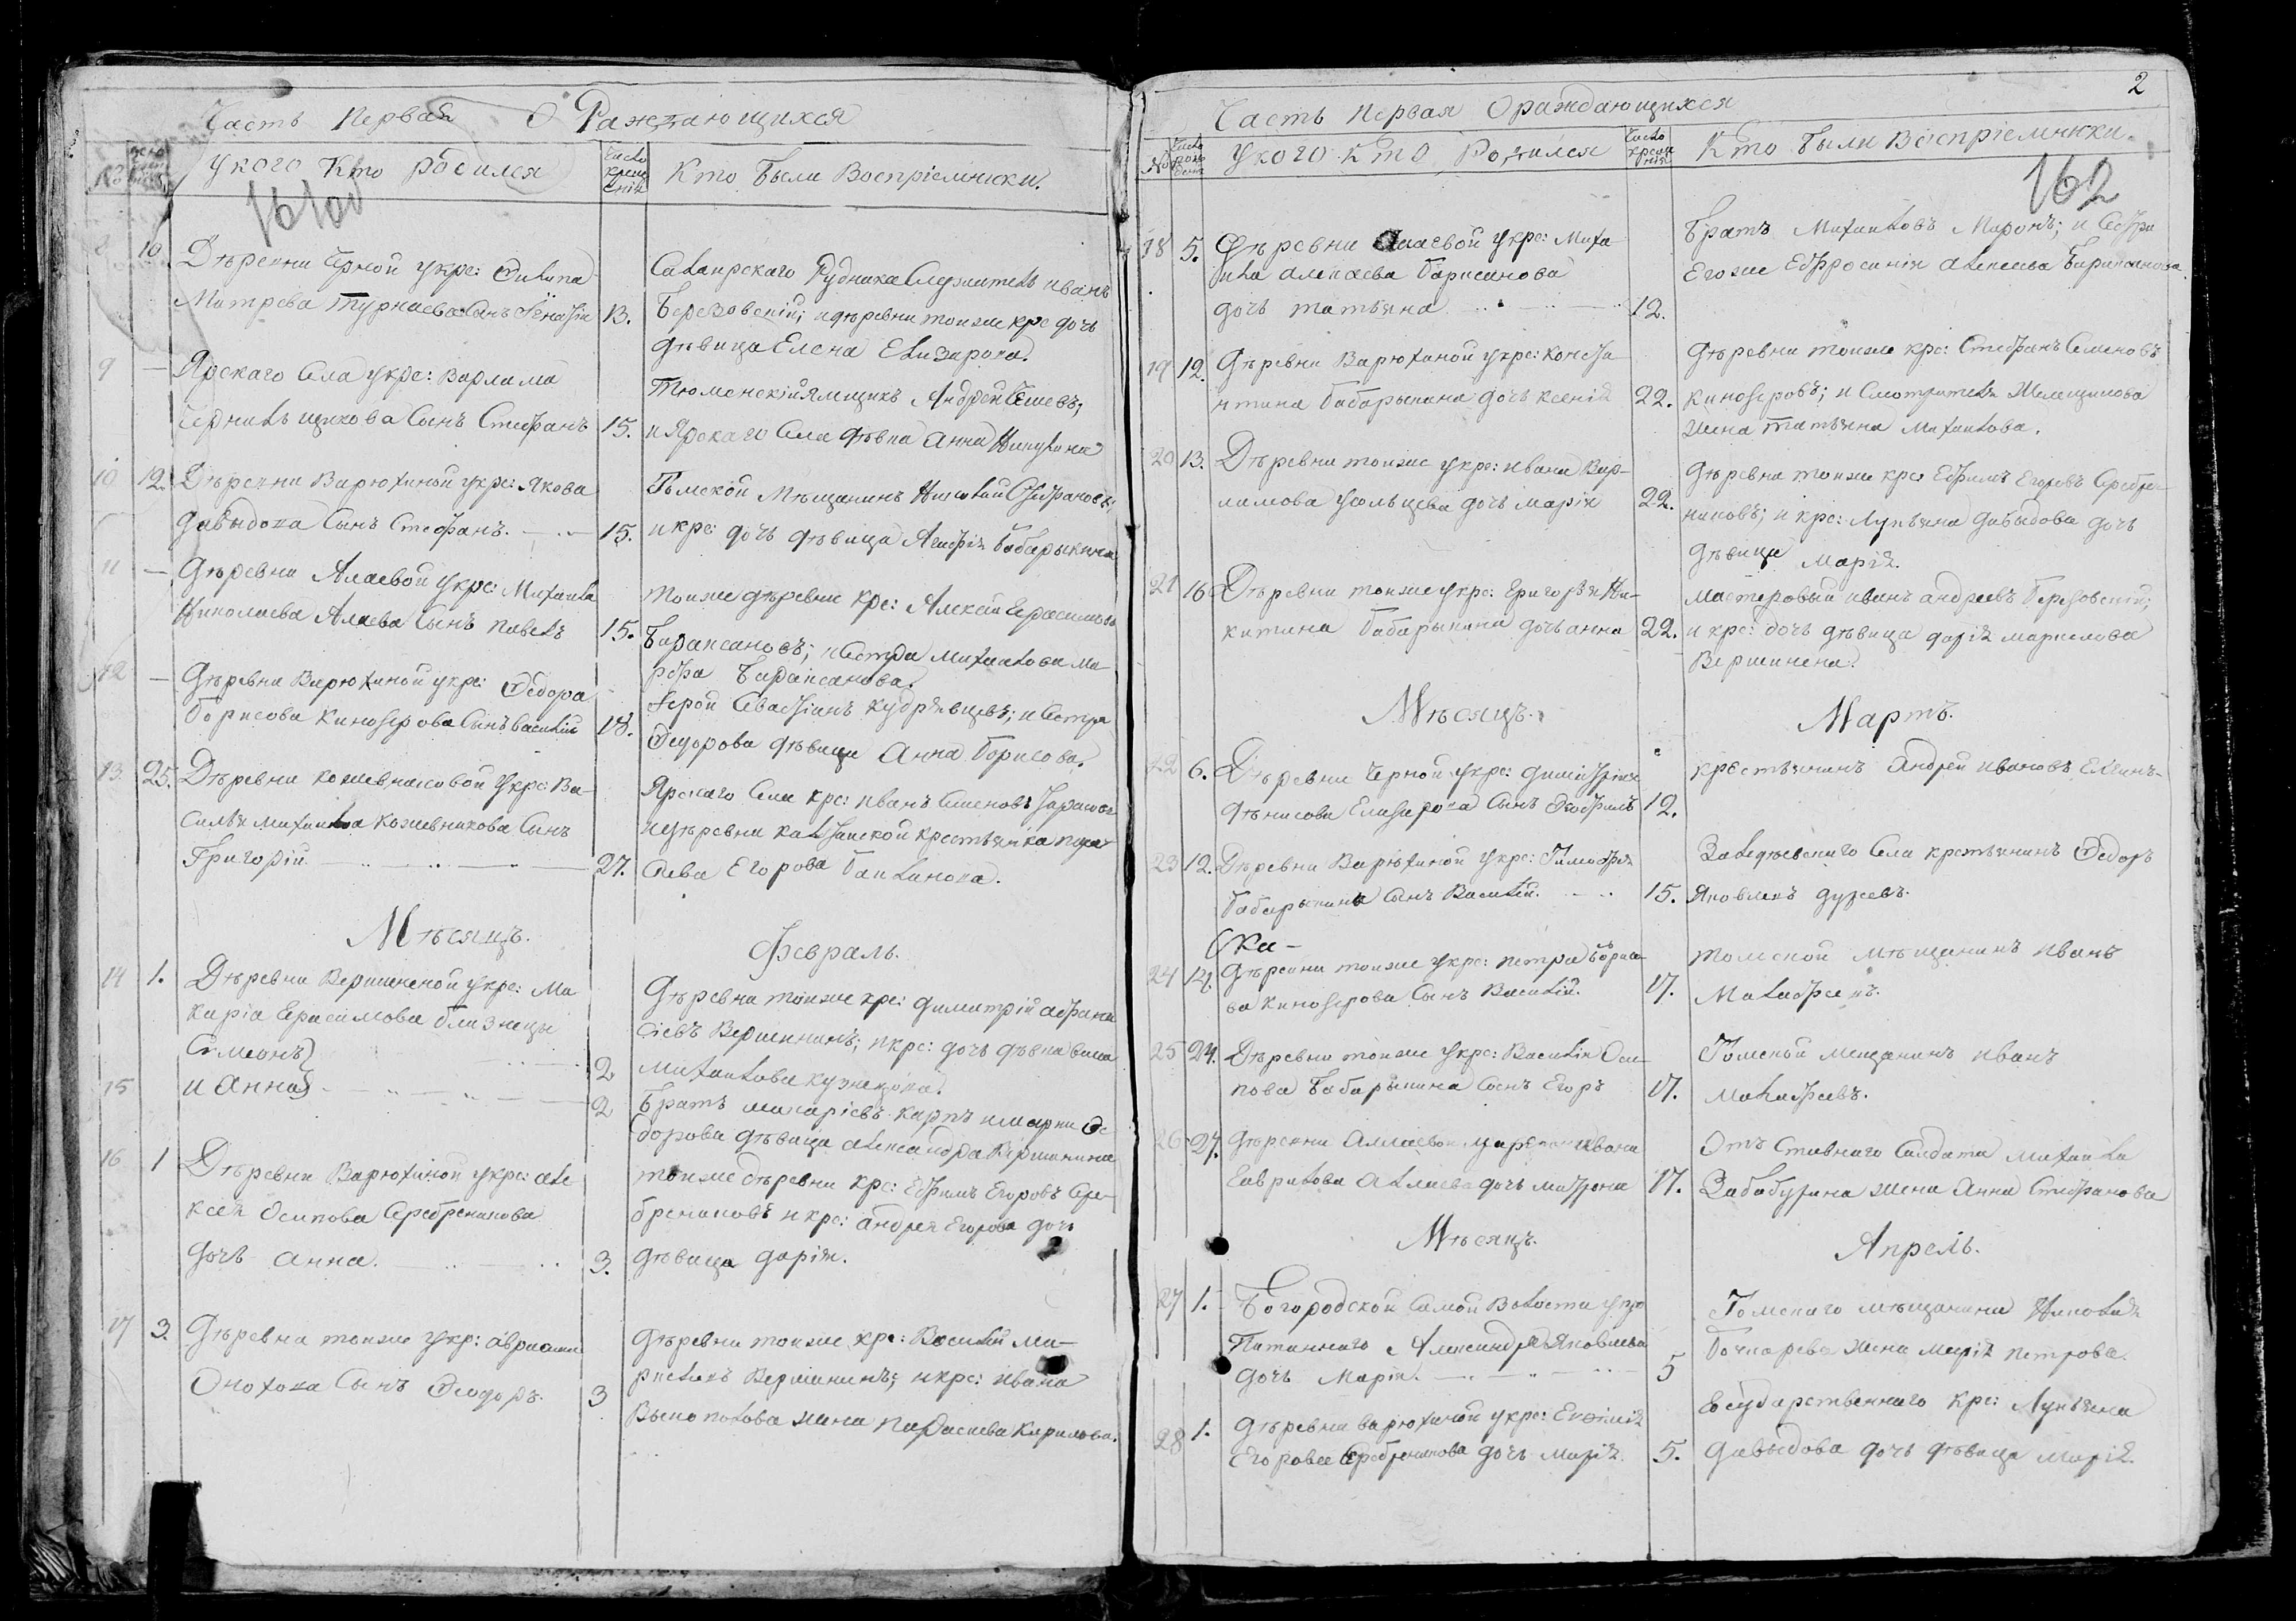 Часть Первая О Раждающихся
№
У кого Кто родился
Число крещенія
Кто были Воспріемники.
161об
8 10 Деревни Черной у кре: Филипа
Митрева Турнаева Сынъ Игнатій 13.
Салаирскаго Рудника Служитель иванъ
Березовскій; и деревни тоиже кре дочь
девица Елена Елизарова.
9 — Ярскаго Села у кре: Варлама
Чернильщикова Сынъ Стефанъ 15.
Тюменскій ямщикъ Андрей
и Ярскаго Села девка Анна Никулина
10 12. Деревни Варюхиной у кре: Якова
Давыдова Сынъ Стефанъ. 15.
Томской Мещанинъ Николай Стефановъ;
и кре: дочь девица Агафія Бабарыкина
11 — Деревни Алаевой у кре: Михаила
Николаева Алаева Сынъ павелъ 15.
тоиже деревни кре: Алексей Герасимовъ
Барансановъ; и Сестра Михаилова Ма-
рфа Барансанова.
12 — Деревни Варюхиной у кре: Федора
борисова Кинозерова Сынъ Василій 18.
Иерей Севастіанъ Кудрявцевъ; и Сестра
Федорова девица Анна борисова.
13. 25. Деревни кожевниковой у кре: Ва-
силья михайлова Кожевникова Сынъ
Григорій 27.
Ярскаго Села кре: иванъ Семеновъ
и деревни калтайской крестьянка пара-
сева Егорова баклинова.
Месяцъ.
Февраль.
14 1. Деревни Вершининой у кре: Ма
карія Герасимова близнецы
Симеонъ 2
15 и Анна 2
Деревни тоиже кре: димитрій афана
сіевъ Вершининъ; и кре: дочь девка
Михаилова кузнецова.
братъ макаріевъ карпъ и марки Фе
дорова девица александра Вершинина
16 1 Деревни Варюхиной у кре: але
ксея Осипова Серебреникова
дочь анна. 3.
тоиже деревни кре: Ефимъ Егоровъ Сере-
брениковъ и кре: андрея Егорова дочь
девица дарія.
17 3. Деревни тоиже у кр: авраами
Онохова Сынъ Феодоръ. 3
Деревни тоиже кре: Василій Ма-
ркеловъ Вершининъ; и кре: ивана
Выкополова жена парасиева Кирилова.
2
Часть первая О раждающихся
№
Число рожденія
У кого кто Родился
Число крещенія
Кто были Воспріемники.
162
18 5. Деревни Алаевой у кре: Миха
ила алексеева барисанова
дочь татьяна 12.
братъ Михаиловъ Миронъ; и Сестра
Его же Ефросинія алексеева
19 12. Деревни Варюхиной у кре: конста
нтина бабарыкина дочь ксенія 22.
Деревни тоиже кре: Стефанъ Семеновъ
кинозеровъ; и Смотрителя
жена татьяна михаилова.
20 13. Деревни тоиже у кре: ивана Вар-
ламова усольцева дочь марія 22.
Деревни тоиже кре: Ефимъ Егоровъ Сребре-
никовъ; и кре: Лукьяна давыдова дочь
девица Марія.
21 16 Деревни тоиже у кре: григорія Ни-
китина бабарыкина дочь анна 22.
мастеровый иванъ андреевъ березовскій;
и кре: дочь девица дарія маркелова
Вершинена.
Месяцъ.
Мартъ.
22 6. Деревни Черной у кре: димитрія
денисова Елизарова Сынъ Феофилъ 12.
крестьянинъ андрей ивановъ
23 12. Деревни Варюхиной у кре: Тимофея
бабарыкина Сынъ Василій. 15.
Зеледеевскаго Села крестьянинъ Федоръ
Яковлевъ
24 14. Деревни тоиже у кре: петра борисо-
ва кинозерова Сынъ Василій. 17.
томской мещанинъ иванъ
Малафеевъ.
25 24. Деревни тоиже у кре: Василія Оси-
пова бабарыкина Сынъ Егоръ 17.
Томской мещанинъ иванъ
Малафеевъ.
26 27. Деревни Алаевой у крестьян ивана
Гаврилова Алаева дочь матрона 17.
Отъ Ставнаго Салдата Михаила
Забабурина жена анна Стефанова
Месяцъ.
Апрель.
27 1. Богородской Самой Волости у кре
Питаннаго Александра Яковлева
дочь Марія. 5
Томскаго мещанина Николая
бочкарева жена марія петрова.
28 1. деревни варюхиной у кре: Ефимія
Егорова Серебреникова дочь Марія 5.
Государственнаго кре: Лукьяна
давыдова дочь девица марія.